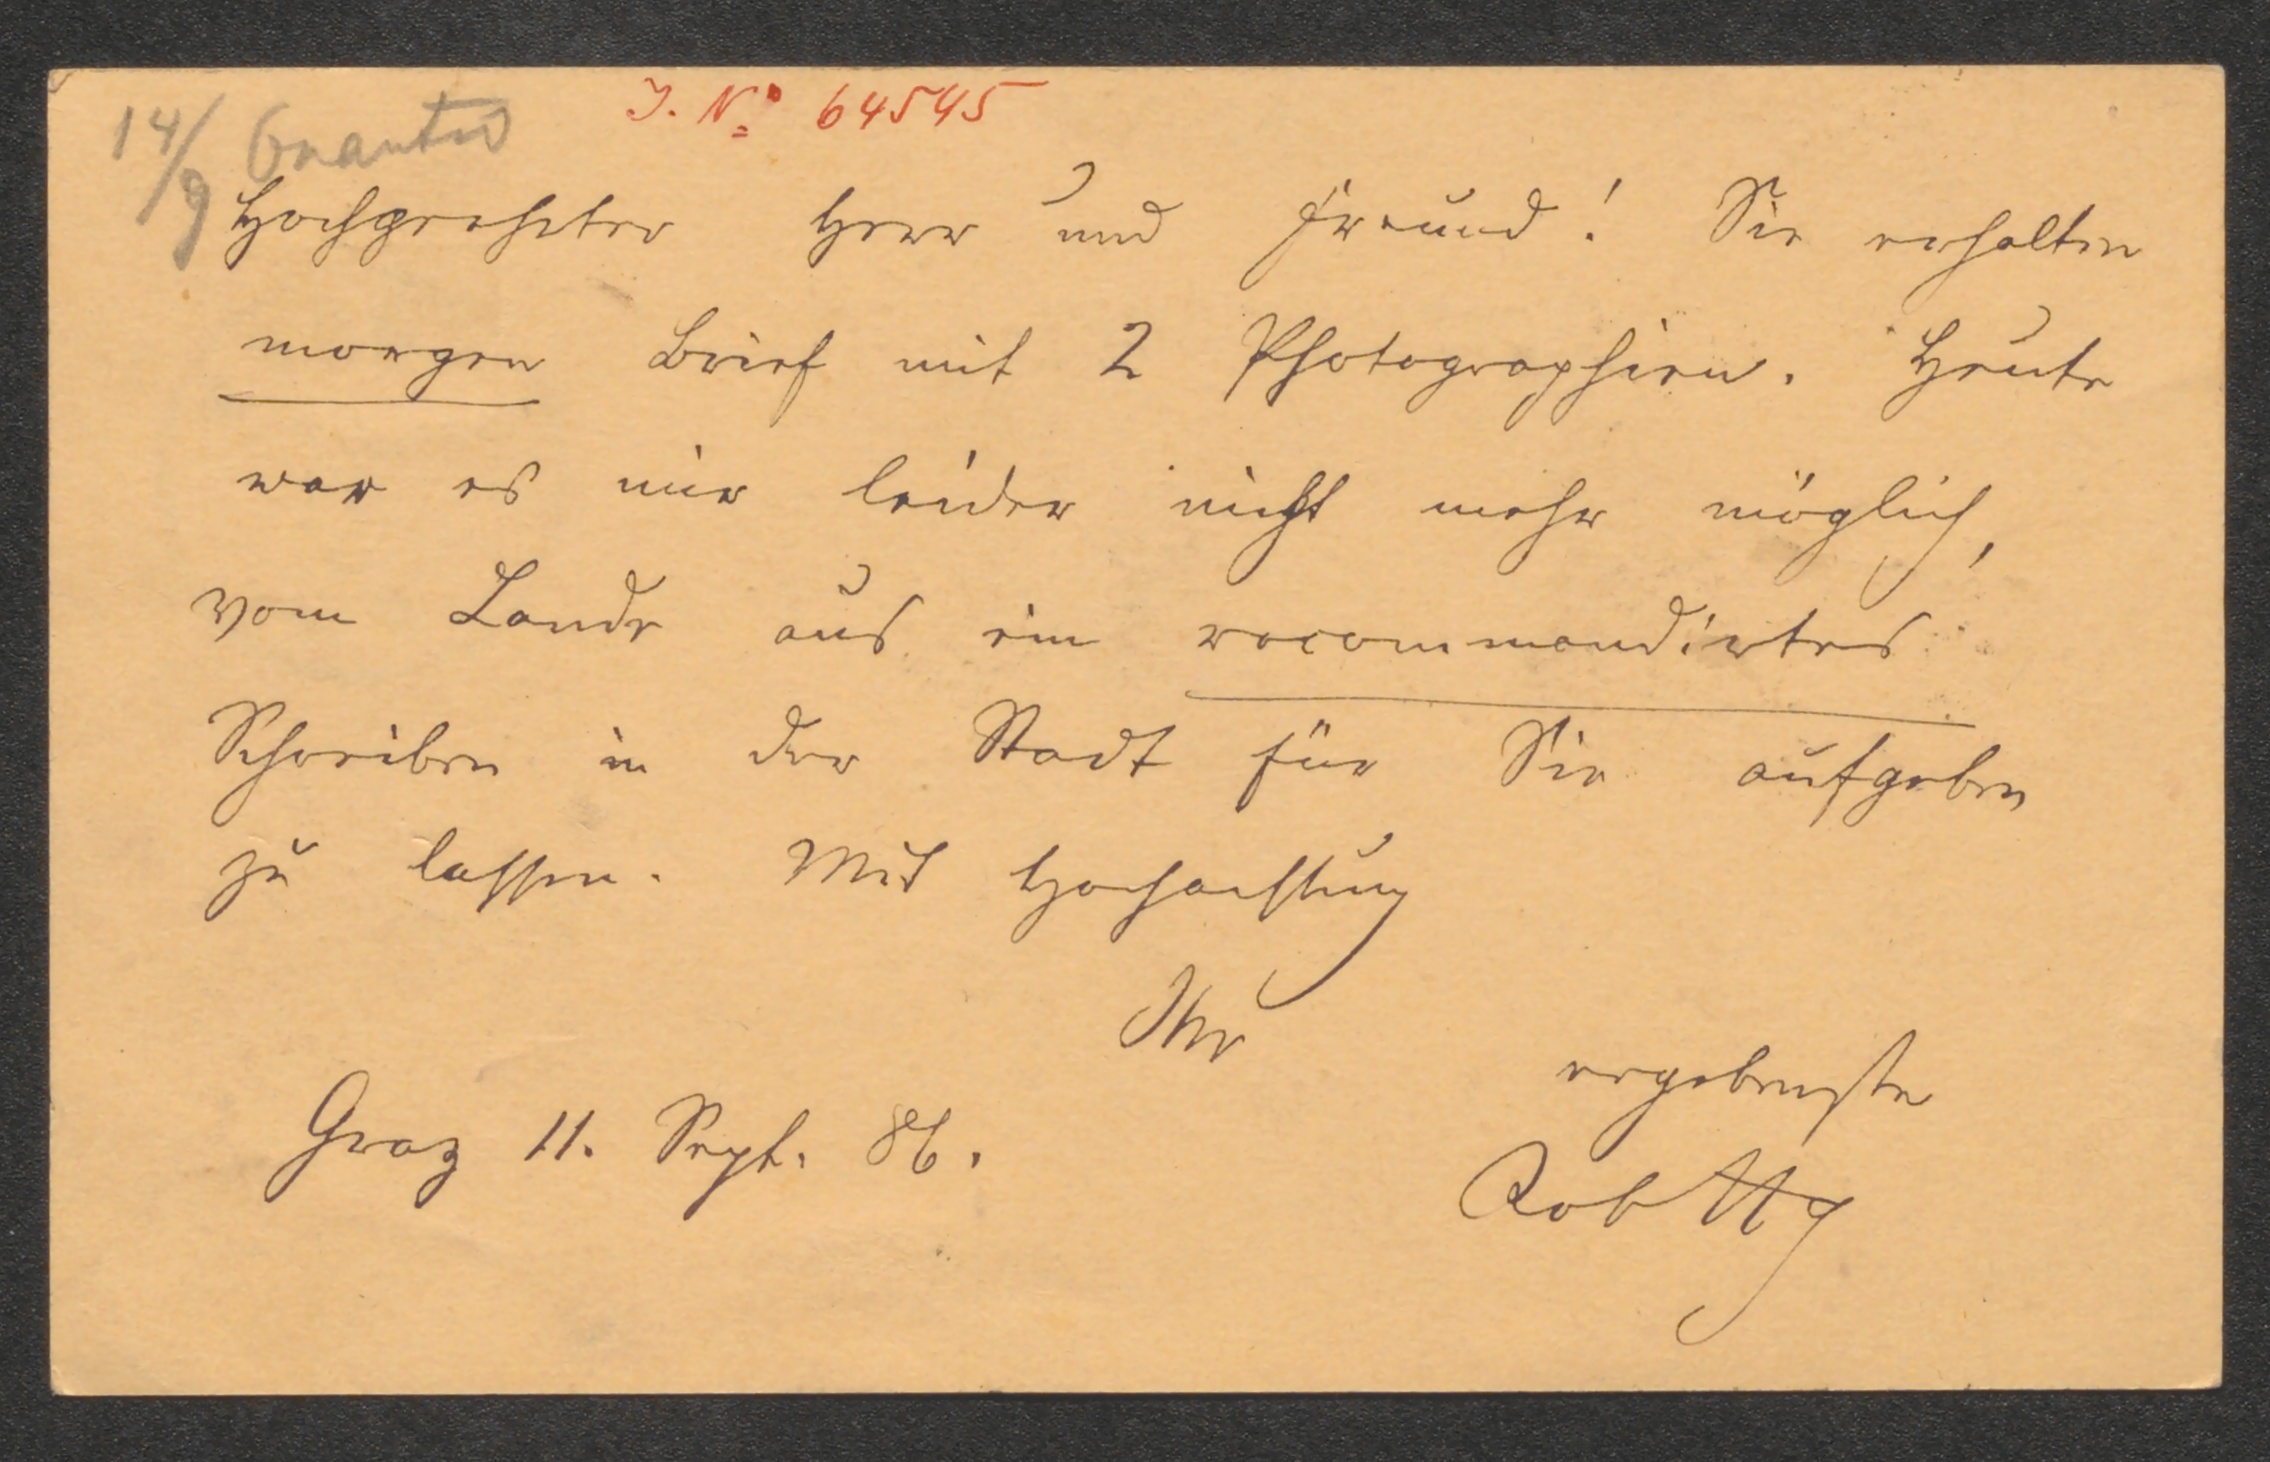 J. No 64545
14/9
Hochgeehrter Herr und Freund! Sie erhalten
morgen Brief mit 2 Photographien. Heute
war es mir leider nicht mehr möglich,
vom Lande aus ein recommandirtes
Schreiben in der Stadt für Sie aufgeben
zu lassen. Mit Hochachtung
Ihr
ergebenster
Graz 11. Sept. 86.
Rob